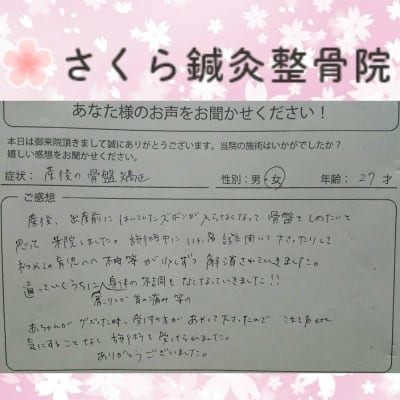 さくら鍼灸整骨院
あなた様のお声をお聞かせください！
本日は御来院頂きまして誠にありがとうございます。当院の施術はいかがでしたか？
嬉しい感想をお聞かせください。
症状: 産後の骨盤矯正 性別: 男・女 年齢: 27才
ご感想
産後、出産前にはいていたズボンが入らなくなって骨盤をしめたいと
思って来院しました。施術中にいろいろ話を聞いて下さったりして
初めての育児への不安等が少しずつ解消されていきました。
通っていくうちに身体の不調もなくなっていきました!!
肩こりや首の痛み等の
赤ちゃんがグズった時、受付の方があやして下さったので 泣き声etc
気にすることなく施術を受けられました。
ありがとうございました。